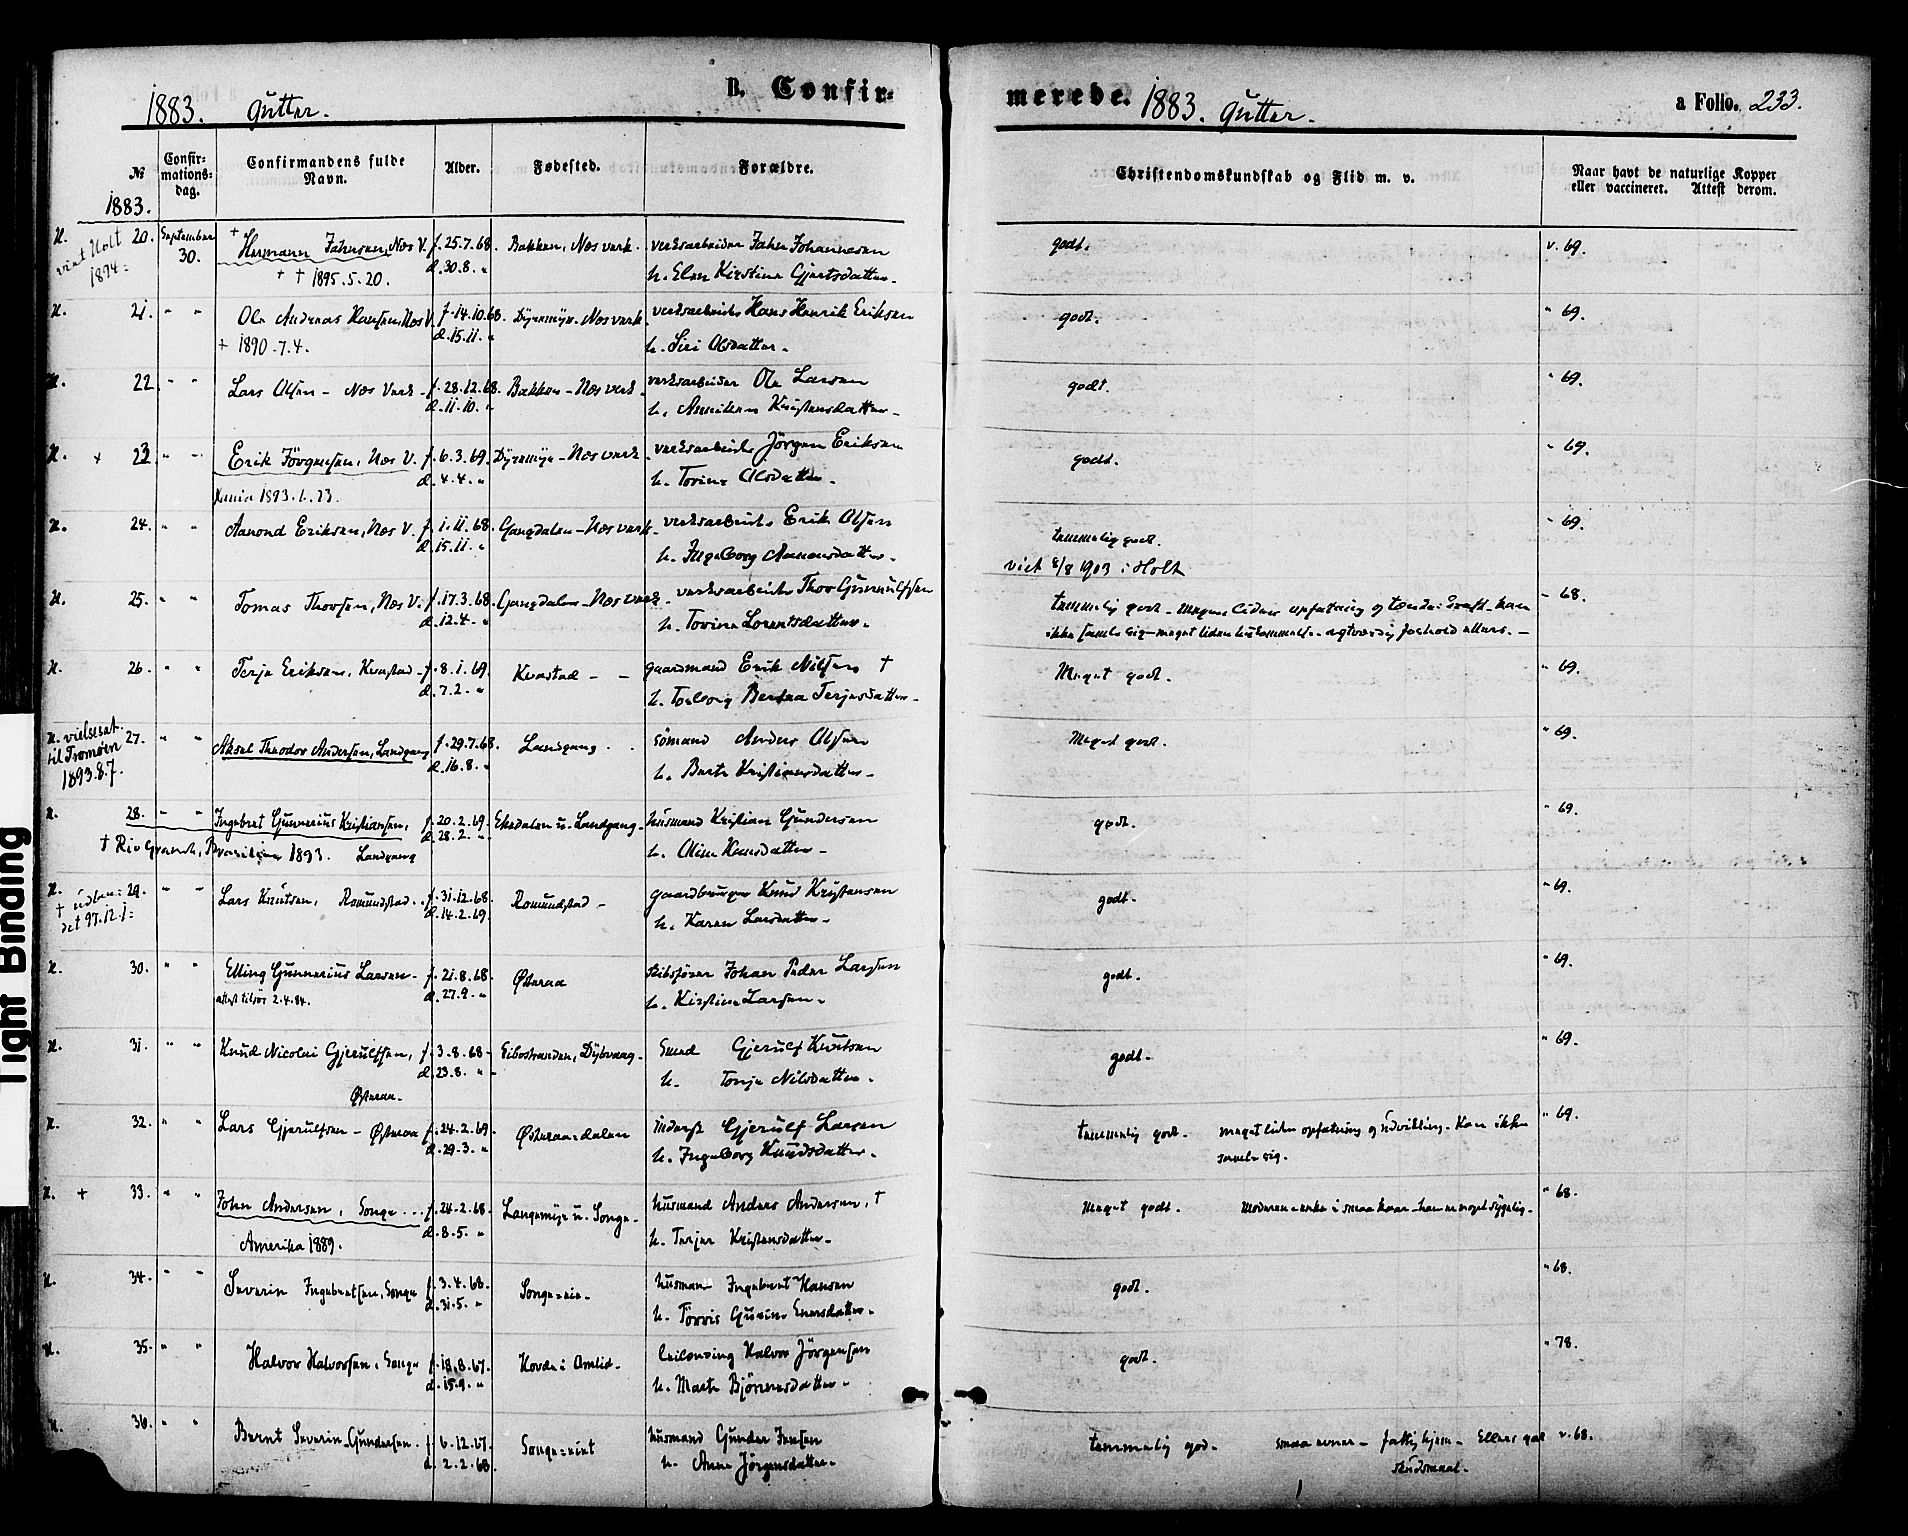 B. Confir-
1883. Gutter.
№
Confir-
mations-
dag.
Confirmandens fulde
Navn.
Alder.
Fødested.
Forældre.
1883.
H. 20. September + Hermann Jahnsen, Næs V. f. 25.7.68. Bakken, Næs verk. verksarbeider Jahn Johannesen
viet Holt 30. d. 30.8. " h. Elen Kirstine Gjertsdatter.
1894: + + 1895.5.20.
H. 21. " " Ole Andreas Hansen, Næs V. f. 14.10.68. Dyremyr. Næs verk. verksarbeider Hans Henrik Eriksen
+ 1890.7.4. d. 15.11. " h. Siri Olsdatter.
H. 22 " " Lars Olsen - Næs Verk - f. 28.12.68. Bakken - Næs verk. verksarbeider Ole Larsen
d. 11.10. " h. Anniken Kristensdatter -
H. + 23 " " Erik Jörgensen, Næs V. f. 6.3.69. Dyremyr - Næs verk. verksarbeider Jörgen Eriksen
d. 4.4. " h. Torine Olsdatter.
1893.1.23.
H. 24. " " Aanond Eriksen, Næs V. f. 1.11.68. Gangdalen - Næs verk. verksarbeider Erik Olsen
d. 15.11. " h. Ingeborg
H. 25. " " Tomas Thorsen, Næs V. f. 17.3.68. Gangdalen - Næs verk. verksarbeider Thor Gunnulfsen
d. 12.4. " h. Torine Lorentsdatter.
H. 26. " " Terje Eriksen, Kvastad - f. 8.1.69. Kvastad - - gaardmand Erik Nilsen +
d. 7.2. " h. Torborg Bertea Terjesdatter -
H. vielsesat. 27. " " Aksel Theodor Andersen, Landgang f. 29.7.68. Landgang. sömand Anders Olsen
til Tromöen d. 16.8. " h. Berte Kristiansdatter -
1893.8.7.
H. 28. " " Ingebret Gunnerius Kristiansen, f. 20.2.69. Ekedalen u. Landgang. husmand Kristian Gundersen
d. 28.2. " h. Oline Hansdatter -
+ Rio Grande, Brasilien 1893. Landgang
H. 29. " " Lars Knutsen, Romundstad. f. 31.12.68. Romundstad - gaardbruger Knud Kristensen
d. 14.2.69. h. Karen Larsdatter -
H. 30. " " Elling Gunnerius Larsen - f. 21.8.68. Østeraa skibsförer Johan Peder Larsen
2.4.84. d. 27.9. " h. Kirstine Larsen.
H. 31. " " Knud Nicolai Gjerulfsen, f. 3.8.68 - Gibostranden, Dybvaag - Gjerulf Knutsen
d. 23.8. " h. Tonje Nilsdatter.
Østeraa.
H. 32. " " Lars Gjerulfsen - Østeraa f. 24.2.69. Østeraadalen inderst Gjerulf Larsen
d. 29.3. " h. Ingeborg Knudsdatter.
H. + 33. " " John Andersen, Songe f. 24.2.68. Langemyr u. Songe. husmand Anders Andersen, +
d. 8.5. " h. Terjer Kristensdatter -
Amerika 1889.
H. 34. " " Severin Ingebretsen, Songe f. 3.4.68. Songe-eie. husmand Ingebret Hansen
d. 31.5. "
H. 35. " " Halvor Halvorsen, Songe f. 18.8.67. Hovde i Omlid. leilending Halvor Jörgensen
d. 15.9. " h. Marte Björnsdatter -
H. 36. " " Bernt Severin Gundersen. f. 6.12.67. Songe-eiet husmand Gunder Jensen
d. 2.2.68. h. Anne Jörgensdatter -
merede. 1883. Gutter. a Folio. 233.
Christendomskundskab og Flid m. v.
Naar havt de naturlige Kopper
eller vaccineret. Attest derom.
godt. v. 69.
godt. " 69.
godt. " 69.
godt. " 69.
temmelig godt. " 69.
viet 8/8 1903 i Holt
temmelig godt - meget liden opfatning og tænkekraft - kan " 68.
ikke samle sig - meget liden hukommelse - agtværdig forhold ellers. -
Meget godt. " 69.
Meget godt. " 69.
godt. " 69.
godt. " 69.
godt. " 69.
godt - " 69.
temmelig godt. meget liden opfatning og udvikling. Kan ikke " 69.
samle sig.
Meget godt. Moderen enke i smaa kaar - han er noget sygelig. " 68.
godt. " 68.
godt. " 78.
temmelig god. smaa evner - fattig hjem - Ellers god v. 68.
skudsmaal.
Tight Binding